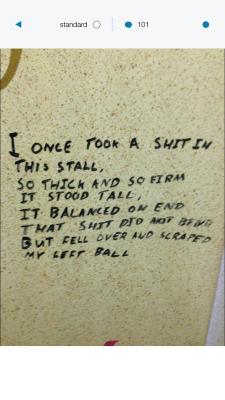 standard 101
I ONCE TOOK A SHIT IN
THIS STALL,
SO THICK AND SO FIRM
IT STOOD TALL,
IT BALANCED ON END
THAT SHIT DID NOT BEND
BUT FELL OVER AND SCRAPED
MY LEFT BALL